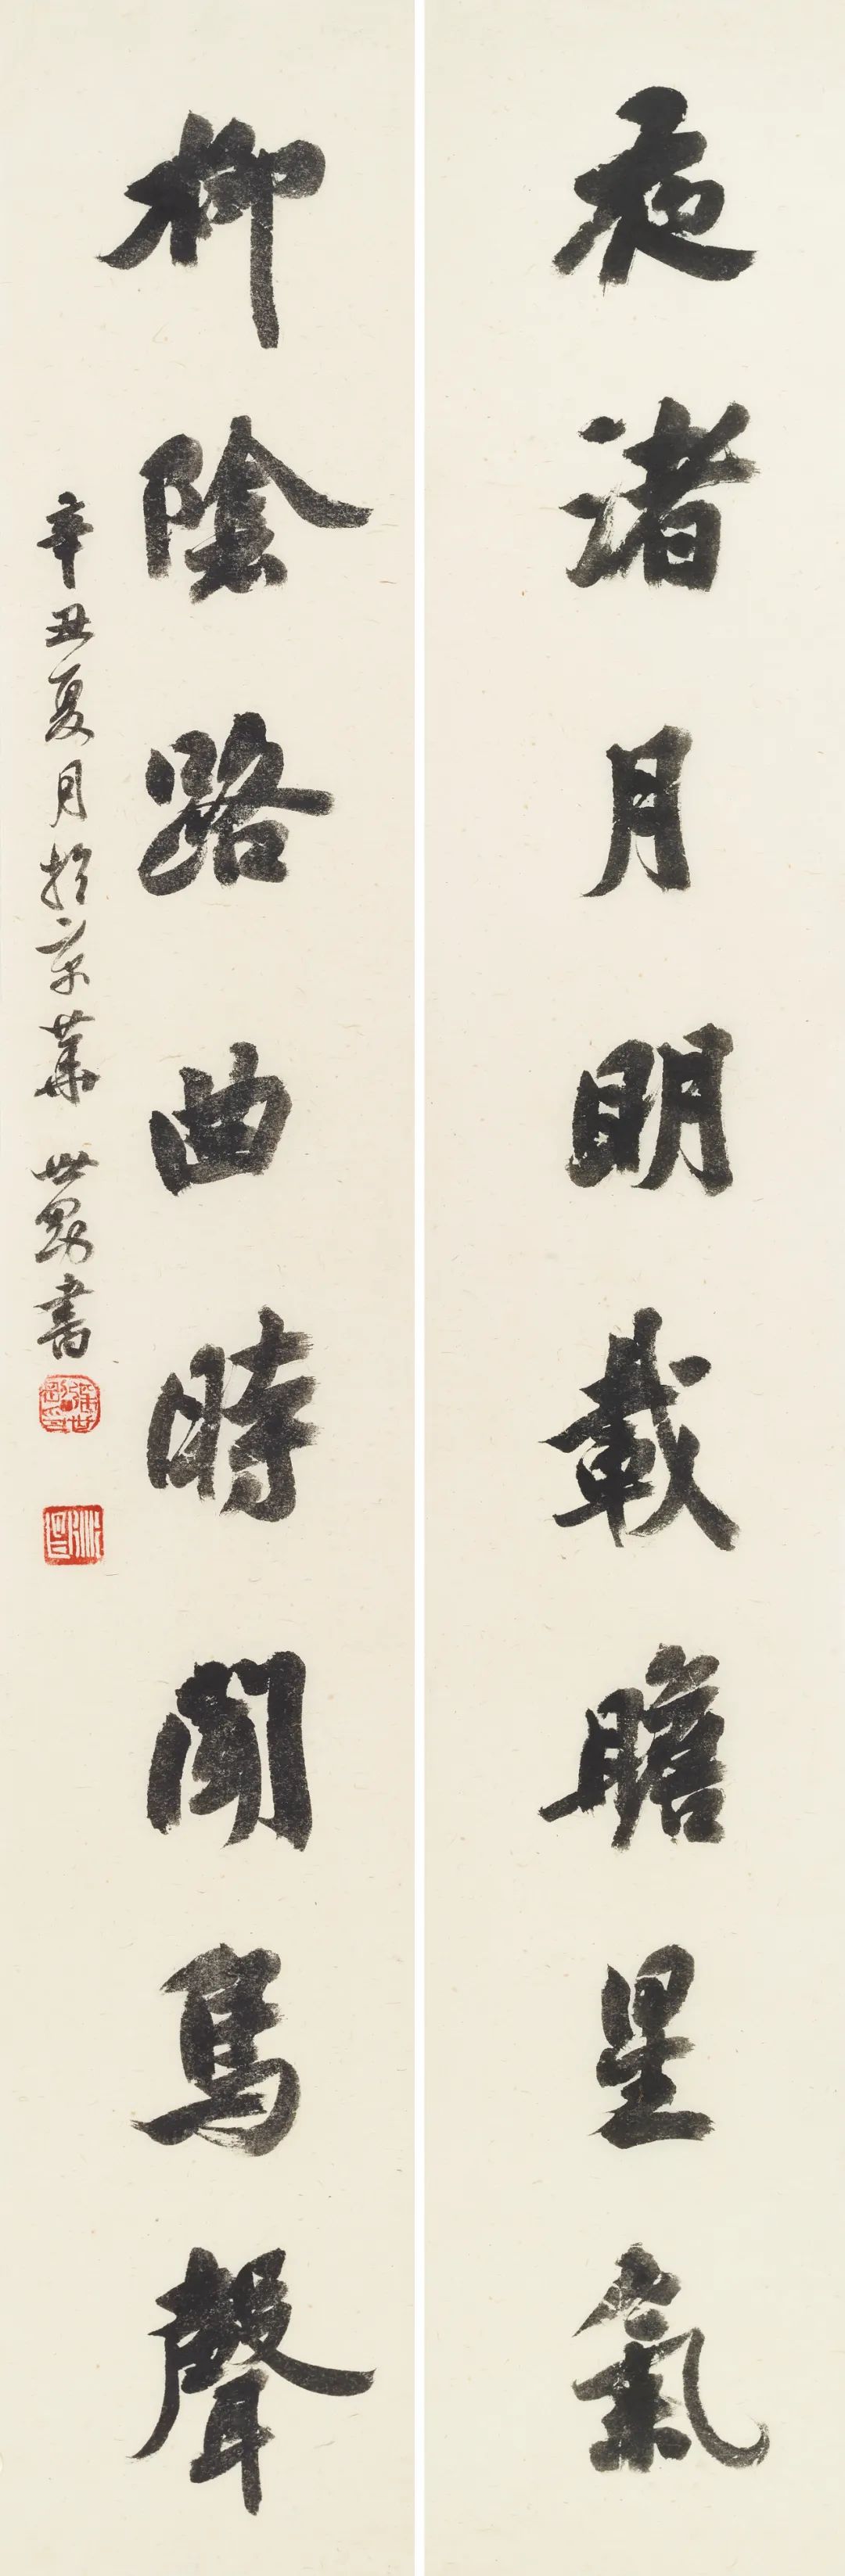 夜渚月明載瞻星氣
柳陰路曲時聞馬聲
辛丑夏月於京華 世剛書